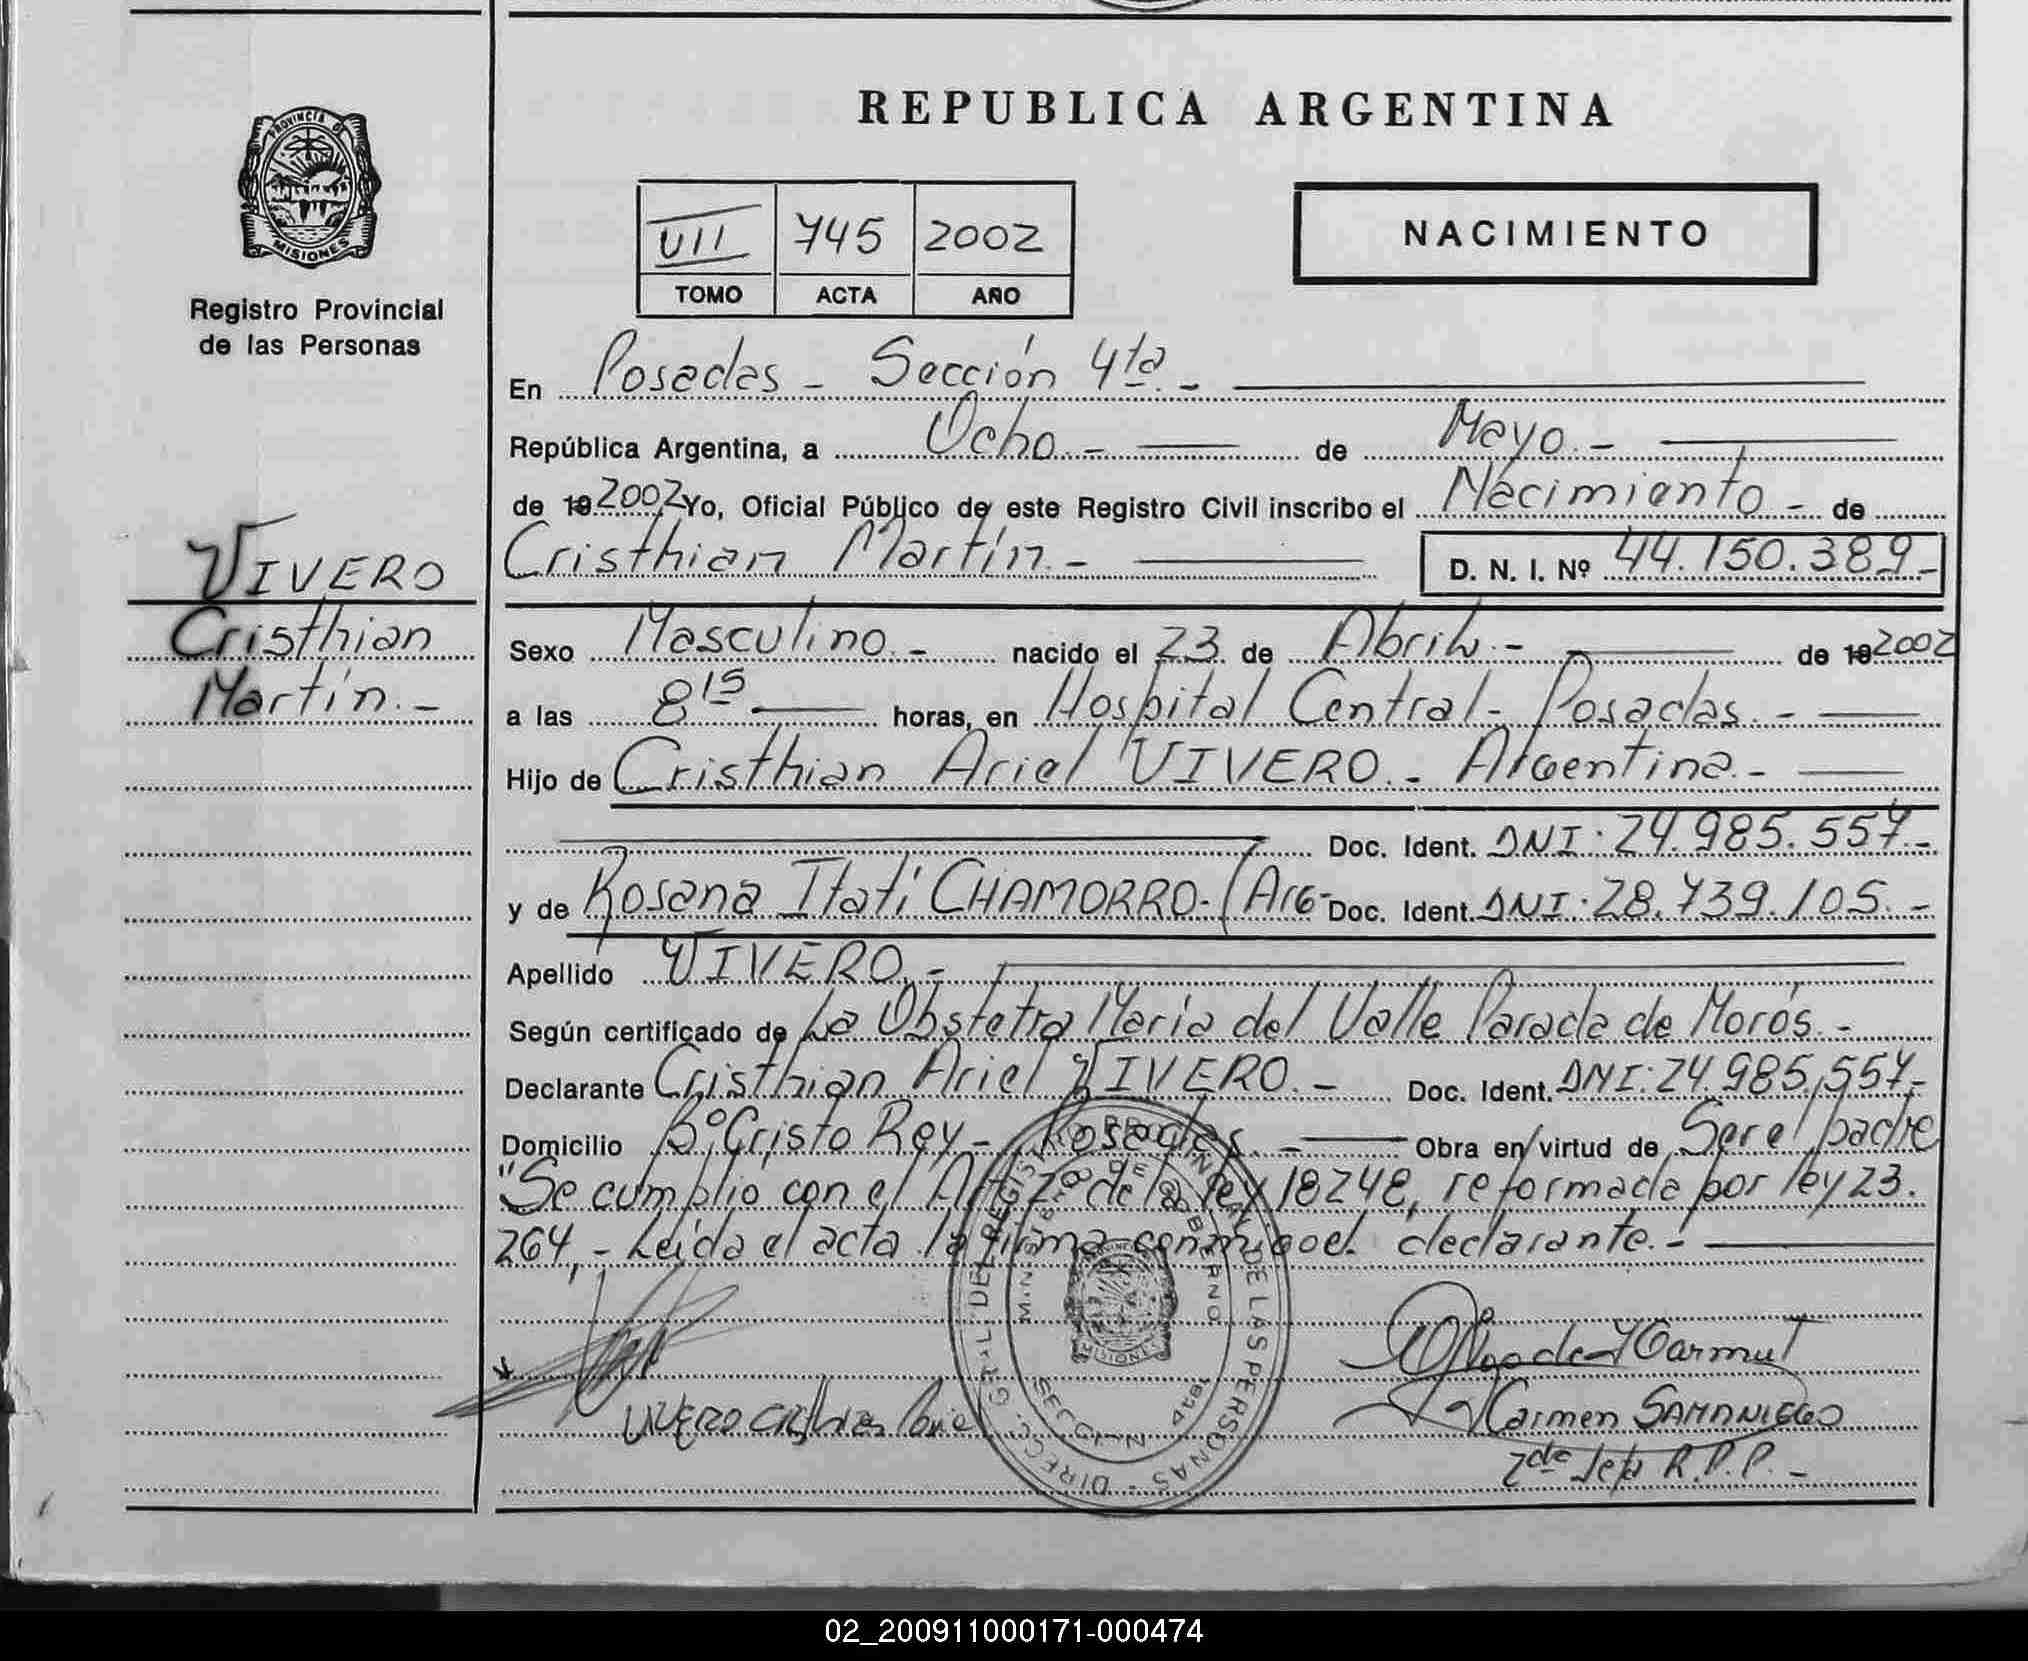 REPUBLICA ARGENTINA
PROVINCIA DE
MISIONES
Registro Provincial
de las Personas
VII 745 2002
TOMO ACTA AÑO
NACIMIENTO
En Posadas - Sección 4ta. -
República Argentina, a Ocho. - de Mayo. -
de 19 2002 Yo, Oficial Público de este Registro Civil inscribo el Nacimiento - de
Cristhian Martín. - D. N. I. Nº 44.150.389 -
VIVERO
Cristhian
Martín. -
Sexo Masculino. - nacido el 23 de Abril. - de 19 2002
a las 8 15 horas, en Hospital Central - Posadas. -
Hijo de Cristhian Ariel VIVERO. - Argentina. -
Doc. Ident. DNI: 24.985.557. -
y de Rosana Itatí CHAMORRO. - (Arg - Doc. Ident. DNI: 28.739.105. -
Apellido VIVERO. -
Según certificado de La Obstetra María del Valle Parada de Morós. -
Declarante Cristhian Ariel VIVERO. - Doc. Ident. DNI: 24.985.557. -
Domicilio Bº Cristo Rey - Posadas. - Obra en virtud de Ser el padre
"Se cumplio con el Art. 2 de la ley 18248, reformada por ley 23.
264, - Leída el acta la firma conmigo el declarante. -
DIRECC. GRAL. DEL REGISTRO PROVINCIAL DE LAS PERSONAS
MINISTERIO DE GOBIERNO
PROVINCIA
MISIONES
SECCION 4ta
VIVERO Cristhian Ariel
Carmen SAMANIEGO
2da Jefa R.P.P. -
02_200911000171-000474